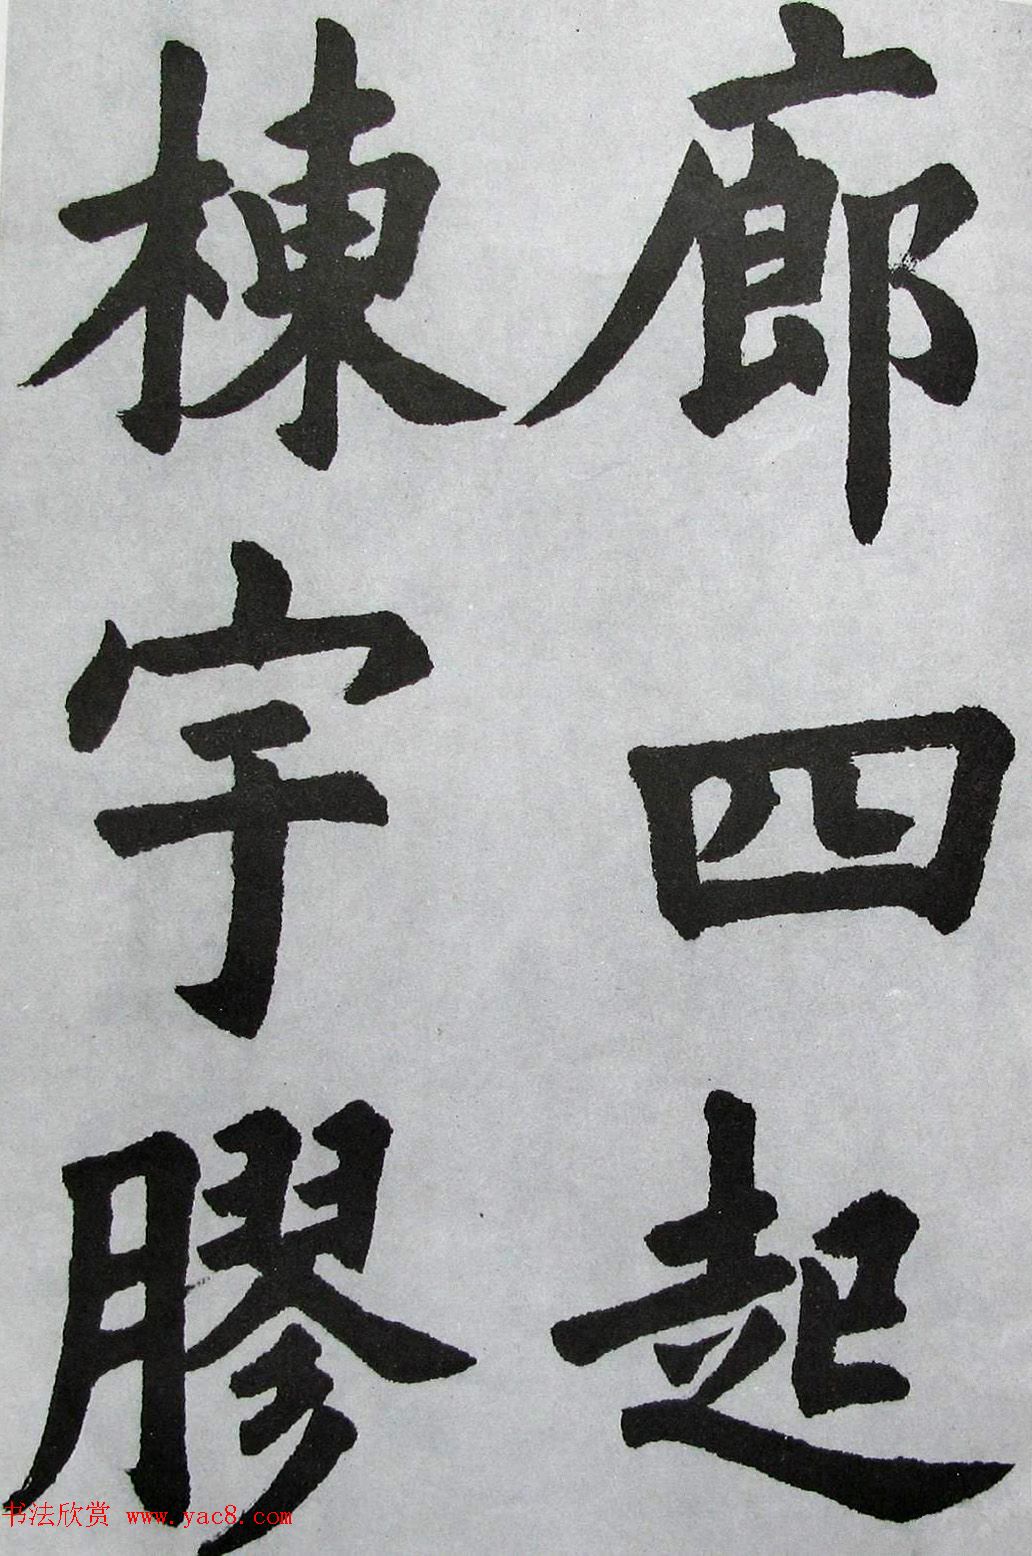 廊四起
棟宇膠
书法欣赏 www.yac8.com